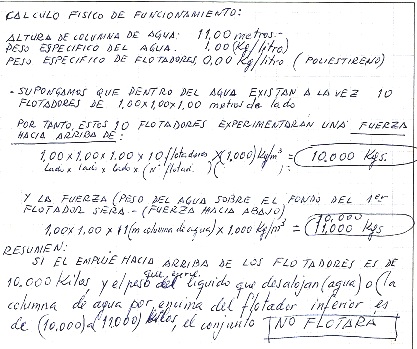 CALCULO FISICO DE FUNCIONAMIENTO:
ALTURA DE COLUMNA DE AGUA: 11,00 metros.-
PESO ESPECIFICO DEL AGUA. 1.00 (Kg/litro)
PESO ESPECIFICO DE FLOTADORES 0,00 Kg/litro (POLIESTIRENO)
- SUPONGAMOS QUE DENTRO DEL AGUA EXISTAN A LA VEZ 10
FLOTADORES DE 1,00x1,00x1,00 metros de lado
POR TANTO, ESTOS 10 FLOTADORES EXPERIMENTARAN UNA FUERZA
HACIA ARRIBA DE:
1,00 x 1,00 x 1.00 x 10 flotadores x (1,000) Kg/m³ = 10.000 Kgs.
lado x lado x lado x (Nº flotad. ) ( ):
Y LA FUERZA (PESO DEL AGUA SOBRE EL FONDO DEL 1er
FLOTADOR SERA - (FUERZA HACIA ABAJO)
1,00 x 1,00 x 11 (m columna de agua) x 1,000 Kg/m³ = 10,000 11,000 Kgs
RESUMEN:
SI EL EMPUJE HACIA ARRIBA DE LOS FLOTADORES ES DE
10.000 Kilos, y el peso del liquido que desalojan (agua) o (la
columna de agua por encima del flotador inferior es
de (10.000) a 11,000) Kilos, el conjunto NO FLOTARA